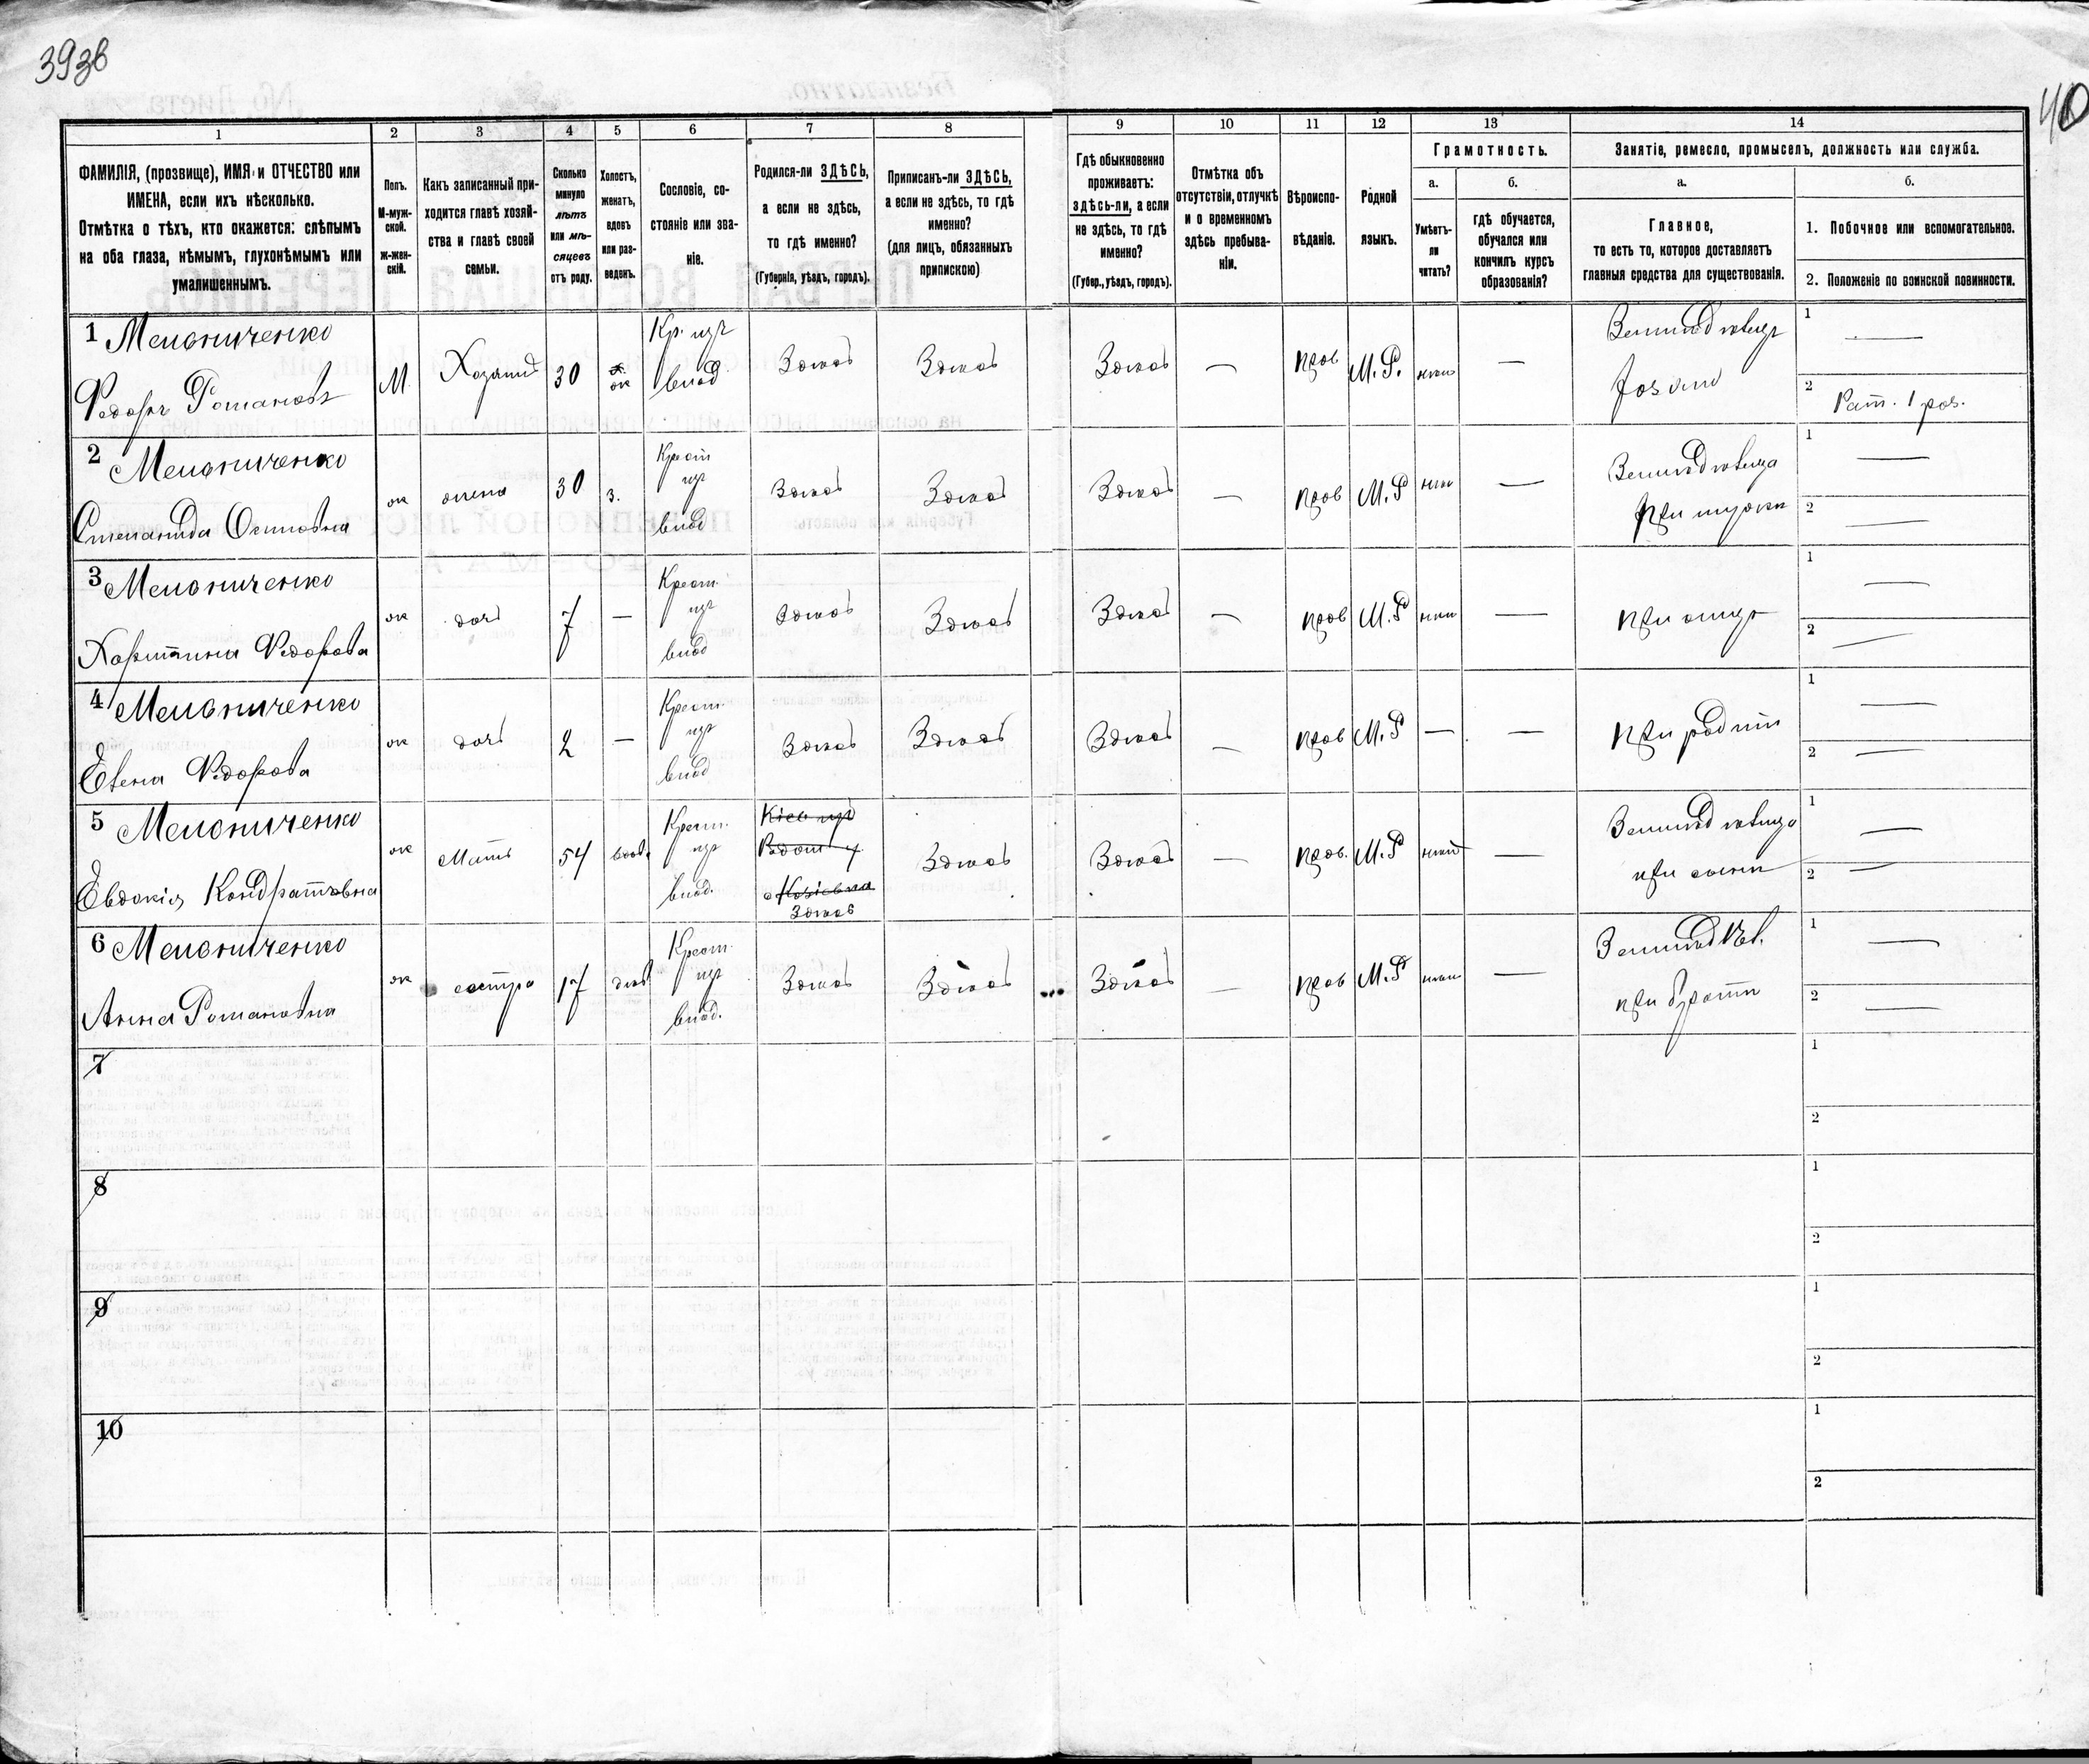 393в
40
1 2 3 4 5 6 7 8 9 10 11 12 13 14
ФАМИЛІЯ, (прозвище), ИМЯ и ОТЧЕСТВО или
ИМЕНА, если ихъ нѣсколько.
Отмѣтка о тѣхъ, кто окажется: слѣпымъ
на оба глаза, нѣмымъ, глухонѣмымъ или
умалишеннымъ.
Полъ.
М-муж-
ской.
Ж-жен-
скій.
Какъ записанный при-
ходится главѣ хозяй-
ства и главѣ своей
семьи.
Сколько
минуло
лѣтъ
или мѣ-
сяцевъ
отъ роду.
Холостъ,
женатъ,
вдовъ
или раз-
веденъ.
Сословіе, со-
стояніе или зва-
ніе.
Родился-ли ЗДѢСЬ,
а если не здѣсь,
то гдѣ именно?
(Губернія, уѣздъ, городъ).
Приписанъ-ли ЗДѢСЬ,
а если не здѣсь, то гдѣ
именно?
(для лицъ, обязанныхъ
припискою)
Гдѣ обыкновенно
проживаетъ:
здѣсь-ли, а если
не здѣсь, то гдѣ
именно?
(Губер., уѣздъ, городъ).
Отмѣтка объ
отсутствіи, отлучкѣ
и о временномъ
здѣсь пребыва-
ніи.
Вѣроиспо-
вѣданіе.
Родной
языкъ.
Грамотность.
а.
Умѣетъ-
ли
читать?
б.
гдѣ обучается,
обучался или
кончилъ курсъ
образованія?
Занятіе, ремесло, промыселъ, должность или служба.
а.
Главное,
то есть то, которое доставляетъ
главныя средства для существованія.
б.
1. Побочное или вспомогательное.
2. Положеніе по воинской повинности.
1 Мельниченко
Федоръ Романовъ
М
Хозяинъ
30
ж
Кр. изъ
влад
Здѣсь
Здѣсь
Здѣсь
—
прав
М.Р.
—
Земледѣлецъ
хозяин
1 —
2 Рат. 1 раз.
2 Мельниченко
Степанида Осиповна
ж
жена
30
з.
Крест
изъ
влад
Здѣсь
Здѣсь
Здѣсь
—
прав
М.Р
—
Земледѣлица
при мужѣ
1 —
2 —
3 Мельниченко
Харитина Федорова
ж
дочь
7
—
Крест.
изъ
влад
Здѣсь
Здѣсь
Здѣсь
—
прав
М.Р
—
при отцѣ
1 —
2 —
4 Мельниченко
Елена Федорова
ж
дочь
2
—
Крест.
изъ
влад
Здѣсь
Здѣсь
Здѣсь
—
прав
М.Р
—
—
при родит
1 —
2 —
5 Мельниченко
Евдокія Кондратовна
ж
Мать
54
вдова
Крест.
изъ
влад.
Кіев. губ
Радом. у
Здѣсь
Здѣсь
Здѣсь
—
прав.
М.Р
—
Земледѣлица
при сынѣ
1 —
2 —
6 Мельниченко
Анна Романовна
ж
сестра
17
дѣв
Крест.
изъ
влад.
Здѣсь
Здѣсь
Здѣсь
—
прав
М.Р
—
Земледѣл.
при братѣ
1 —
2 —
7
1
2
8
1
2
9
1
2
10
1
2